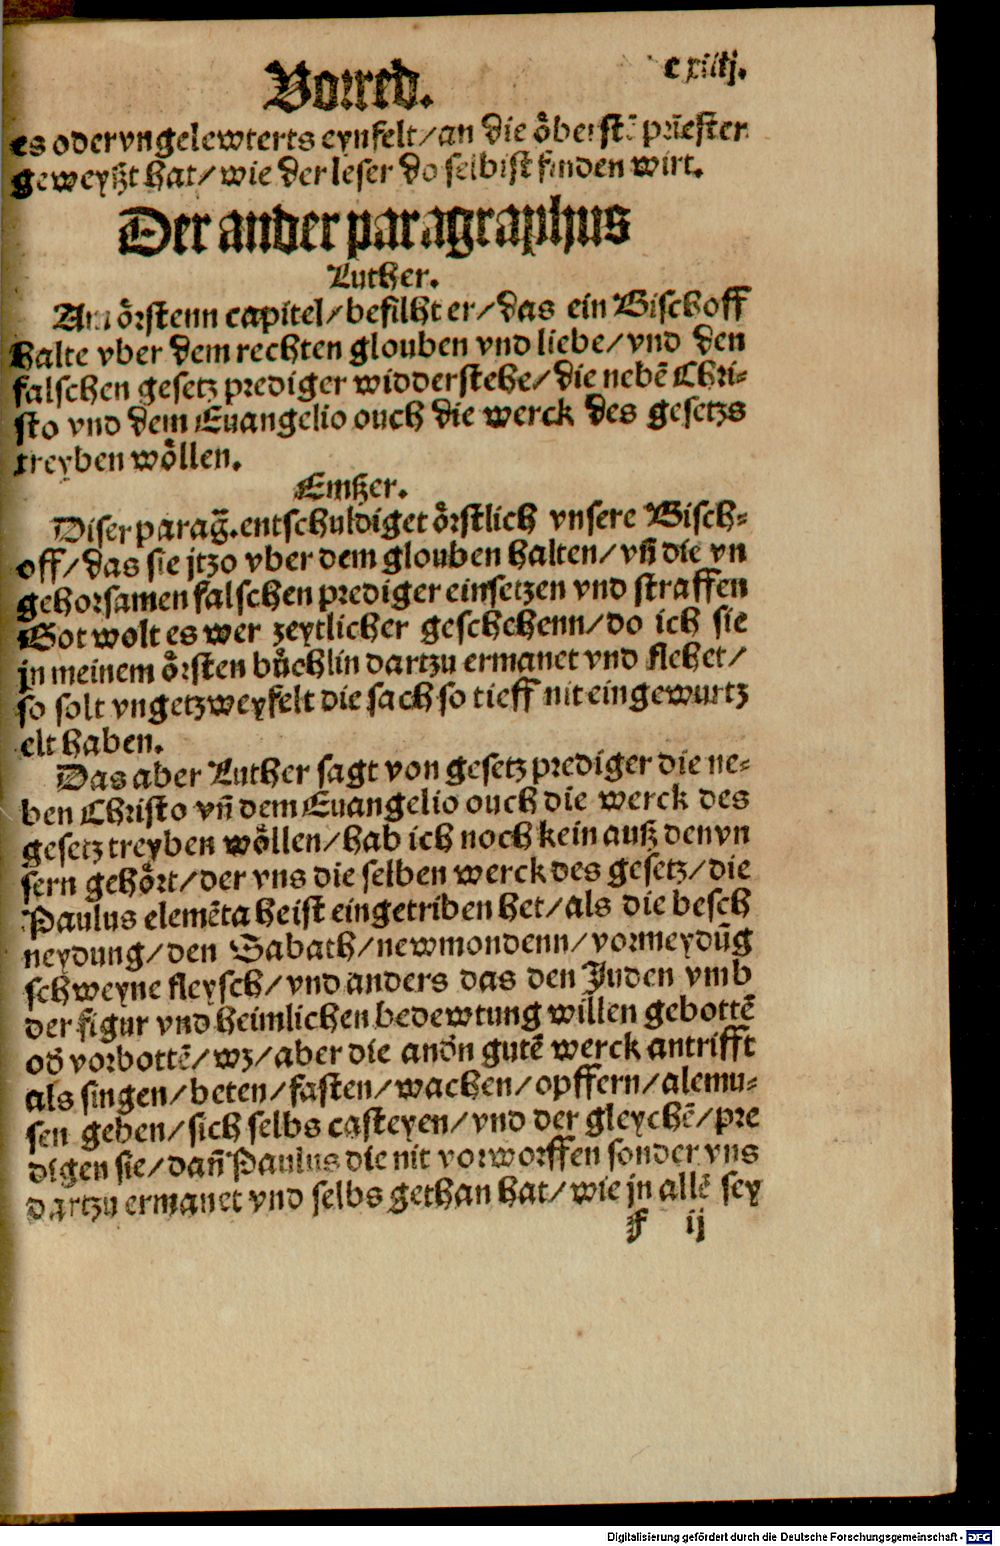 Vorred. cxiiij.
es oder vngelewterts eynfelt/an die öberstē priester
geweyßt hat/wie der leser do selbist finden wirt.
Der ander paragraphus
Luther.
Am örstenn capitel/befilht er/das ein Bischoff
halte vber dem rechten glouben vnd liebe/vnd den
falschen gesetz prediger widderstehe/die nebē Chri-
sto vnd dem Euangelio ouch die werck des gesetzs
treyben wöllen.
Emßer.
Diser parag̃.entschuldiget örstlich vnsere Bisch-
off/das sie jtzo vber dem glouben halten/vñ die vn
gehorsamen falschen prediger einsetzen vnd straffen
Got wolt es wer zeytlicher geschehenn/do ich sie
jn meinem örsten büchlin dartzu ermanet vnd flehet/
so solt vngetzweyfelt die sach so tieff nit eingewurtz
elt haben.
Das aber Luther sagt von gesetz prediger die ne-
ben Christo vñ dem Euangelio ouch die werck des
gesetz treyben wöllen/hab ich noch kein auß den vn
sern gehört/der vns die selben werck des gesetz/die
Paulus elemēta heist eingetriben het/als die besch
neydung/den Sabath/newmondenn/vormeydũg
schweyne fleysch/vnd anders das den Juden vmb
der figur vnd heimlichen bedewtung willen gebottē
od̄ vorbottē/wz/aber die and̄n gutē werck antrifft
als singen/beten/fasten/wachen/opffern/alemu-
sen geben/sich selbs casteyen/vnd der gleychē/pre
digen sie/dañ Paulus die nit vorworffen sonder vns
dartzu ermanet vnd selbs gethan hat/wie jn allē sey
F ij
Digitalisierung gefördert durch die Deutsche Forschungsgemeinschaft - DFG